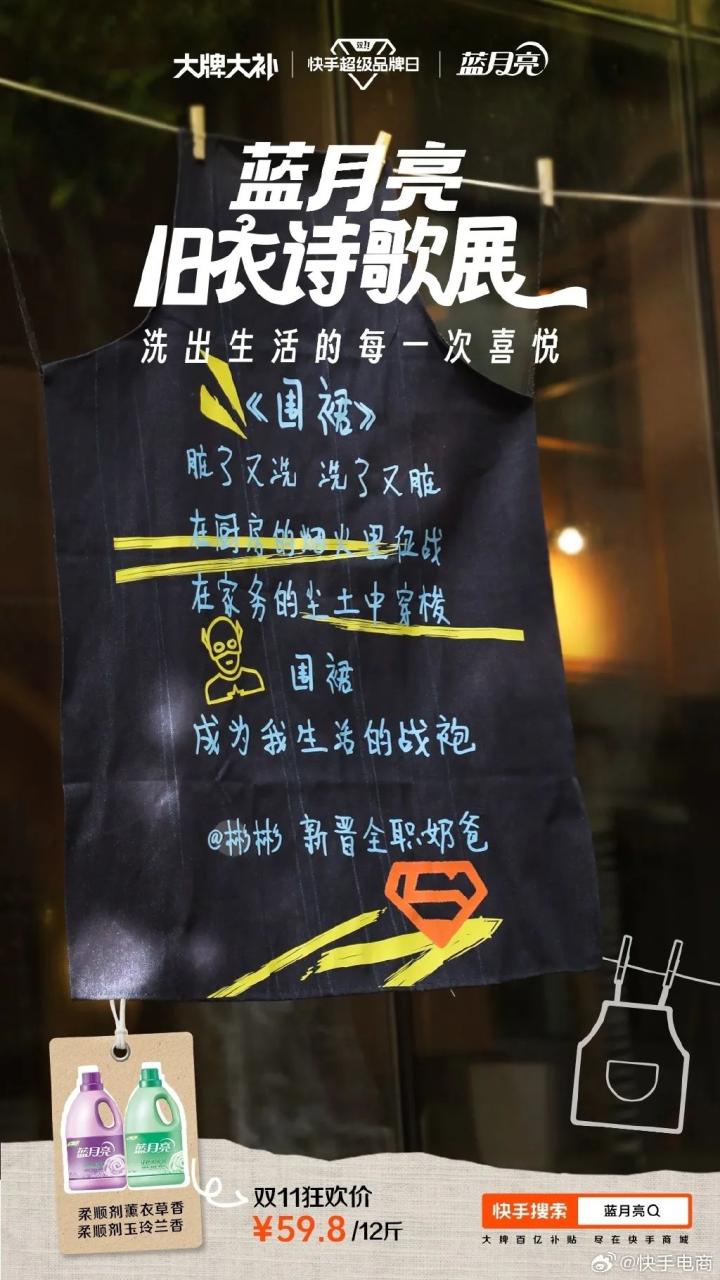 大牌大补
双11
快手超级品牌日
蓝月亮
蓝月亮
旧衣诗歌展
洗出生活的每一次喜悦
《围裙》
脏了又洗 洗了又脏
在厨房的烟火里征战
在家务的尘土中穿梭
围裙
成为我生活的战袍
@彬彬 新晋全职奶爸
蓝月亮 蓝月亮
柔顺剂薰衣草香
柔顺剂玉玲兰香
双11狂欢价
¥59.8/12斤
快手搜索 蓝月亮
大牌百亿补贴 尽在快手商城
@快手电商